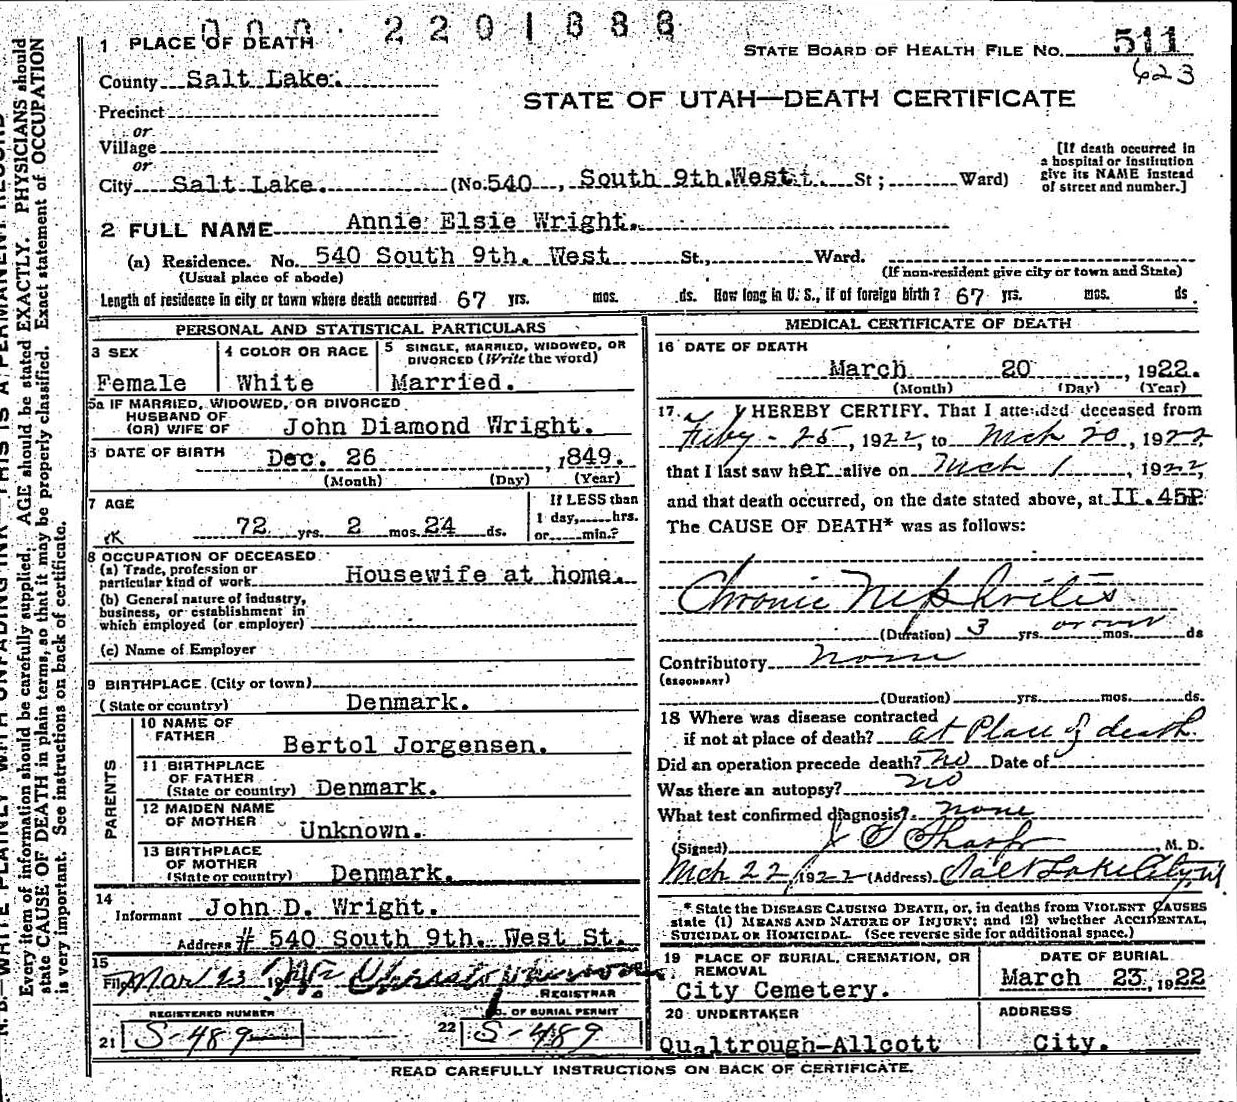 000 2201888
1 PLACE OF DEATH
STATE BOARD OF HEALTH FILE NO. 511
623
County Salt Lake.
STATE OF UTAH—DEATH CERTIFICATE
Precinct
or
Village
or
[If death occurred in a hospital or institution give its NAME instead of street and number.]
City Salt Lake. (No. 540, South 9th. West St; Ward)
2 FULL NAME Annie Elsie Wright.
(a) Residence. No. 540 South 9th. West St., Ward.
(Usual place of abode) (If non-resident give city or town and State)
Length of residence in city or town where death occurred 67 yrs. mos. ds. How long in U. S., if of foreign birth? 67 yrs. mos. ds
PERSONAL AND STATISTICAL PARTICULARS
3 SEX
Female
4 COLOR OR RACE
White
5 SINGLE, MARRIED, WIDOWED, OR DIVORCED (Write the word)
Married.
5a IF MARRIED, WIDOWED, OR DIVORCED
HUSBAND OF
(OR) WIFE OF John Diamond Wright.
6 DATE OF BIRTH
Dec. 26, 1849.
(Month) (Day) (Year)
7 AGE
72 yrs. 2 mos. 24 ds.
If LESS than
1 day, hrs.
or min.?
8 OCCUPATION OF DECEASED
(a) Trade, profession or
particular kind of work Housewife at home.
(b) General nature of industry,
business, or establishment in
which employed (or employer)
(c) Name of Employer
9 BIRTHPLACE (City or town)
(State or country) Denmark.
PARENTS
10 NAME OF
FATHER Bertol Jorgensen.
11 BIRTHPLACE
OF FATHER
(State or country) Denmark.
12 MAIDEN NAME
OF MOTHER Unknown.
13 BIRTHPLACE
OF MOTHER
(State or country) Denmark.
14
Informant John D. Wright.
Address # 540 South 9th. West St.
15
Filed Mar 23 19
REGISTRAR
REGISTERED NUMBER
21 S-489
NO. OF BURIAL PERMIT
22 S-489
MEDICAL CERTIFICATE OF DEATH
16 DATE OF DEATH
March 20, 1922.
(Month) (Day) (Year)
17. I HEREBY CERTIFY, That I attended deceased from
Feby - 25, 1922, to Mch 20, 1922
that I last saw her alive on Mch 1, 1922,
and that death occurred, on the date stated above, at II.45P
The CAUSE OF DEATH* was as follows:
Chronic Nephritis
(Duration) 3 yrs. or over mos. ds
Contributory none
(SECONDARY)
(Duration) yrs. mos. ds.
18 Where was disease contracted
if not at place of death? at Place of death
Did an operation precede death? no Date of
Was there an autopsy? no
What test confirmed diagnosis? none
(Signed) Sharp, M. D.
Mch 22, 1922 (Address) Salt Lake City
* State the DISEASE CAUSING DEATH, or, in deaths from VIOLENT CAUSES
state (1) MEANS AND NATURE OF INJURY; and (2) whether ACCIDENTAL,
SUICIDAL OR HOMICIDAL. (See reverse side for additional space.)
19 PLACE OF BURIAL, CREMATION, OR
REMOVAL
City Cemetery.
DATE OF BURIAL
March 23, 1922
20 UNDERTAKER
Qualtrough-Allcott
ADDRESS
City.
READ CAREFULLY INSTRUCTIONS ON BACK OF CERTIFICATE.
N. B.—WRITE PLAINLY WITH UNFADING INK—THIS IS A PERMANENT RECORD
Every item of information should be carefully supplied. AGE should be stated EXACTLY. PHYSICIANS should
state CAUSE OF DEATH in plain terms, so that it may be properly classified. Exact statement of OCCUPATION
is very important. See instructions on back of certificate.